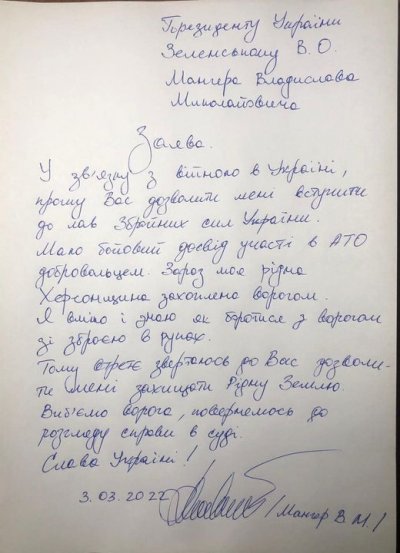 Президенту України
Зеленському В. О.
Мангера Владислава
Миколайовича
Заява.
У зв'язку з війною в Україні,
прошу Вас дозволити мені вступити
до лав Збройних сил України.
Маю бойовий досвід участі в АТО
добровальцем. Зараз моя рідна
Херсонщина захоплена ворогом.
Я вмію і знаю як боротися з ворогом
зі зброєю в руках.
Тому звертаюсь до Вас дозволи-
ти мені захищати Рідну Землю.
Виб'ємо ворога, повернемось до
розгляду справи в суді.
Слава Україні!
3.03.2022
/Мангер В. М./